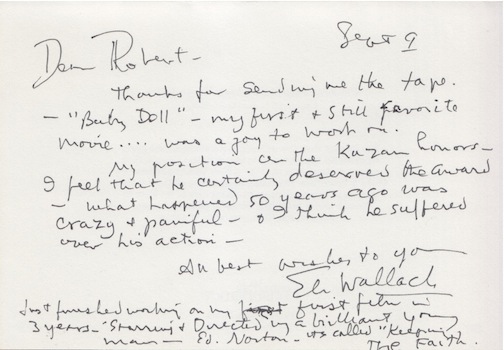 Sept 9
Dear Robert -
Thanks for sending me the tape.
- "Baby Doll" - my first & still favorite
movie.... was a joy to work on.
My position on the Kazan honors -
I feel that he certainly deserved the award
- what happened 50 years ago was
crazy & painful - & I think he suffered
over his action -
All best wishes to you
Eli Wallach
Just finished working on my first film in
3 years - "Starring & Directed by a brilliant young
man - Ed. Norton - it's called "Keeping
The Faith.